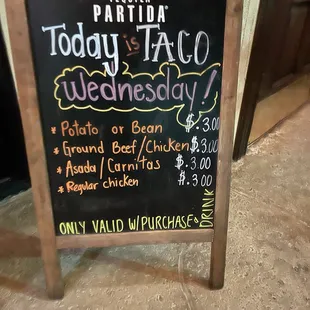 TEQUILA
PARTIDA
Today is TACO
Wednesday!
* Potato or Bean $.3.00
* Ground Beef/Chicken $3.00
* Asada/Carnitas $.3.00
* Regular chicken $.3.00
ONLY VALID W/PURCHASE
DRINK